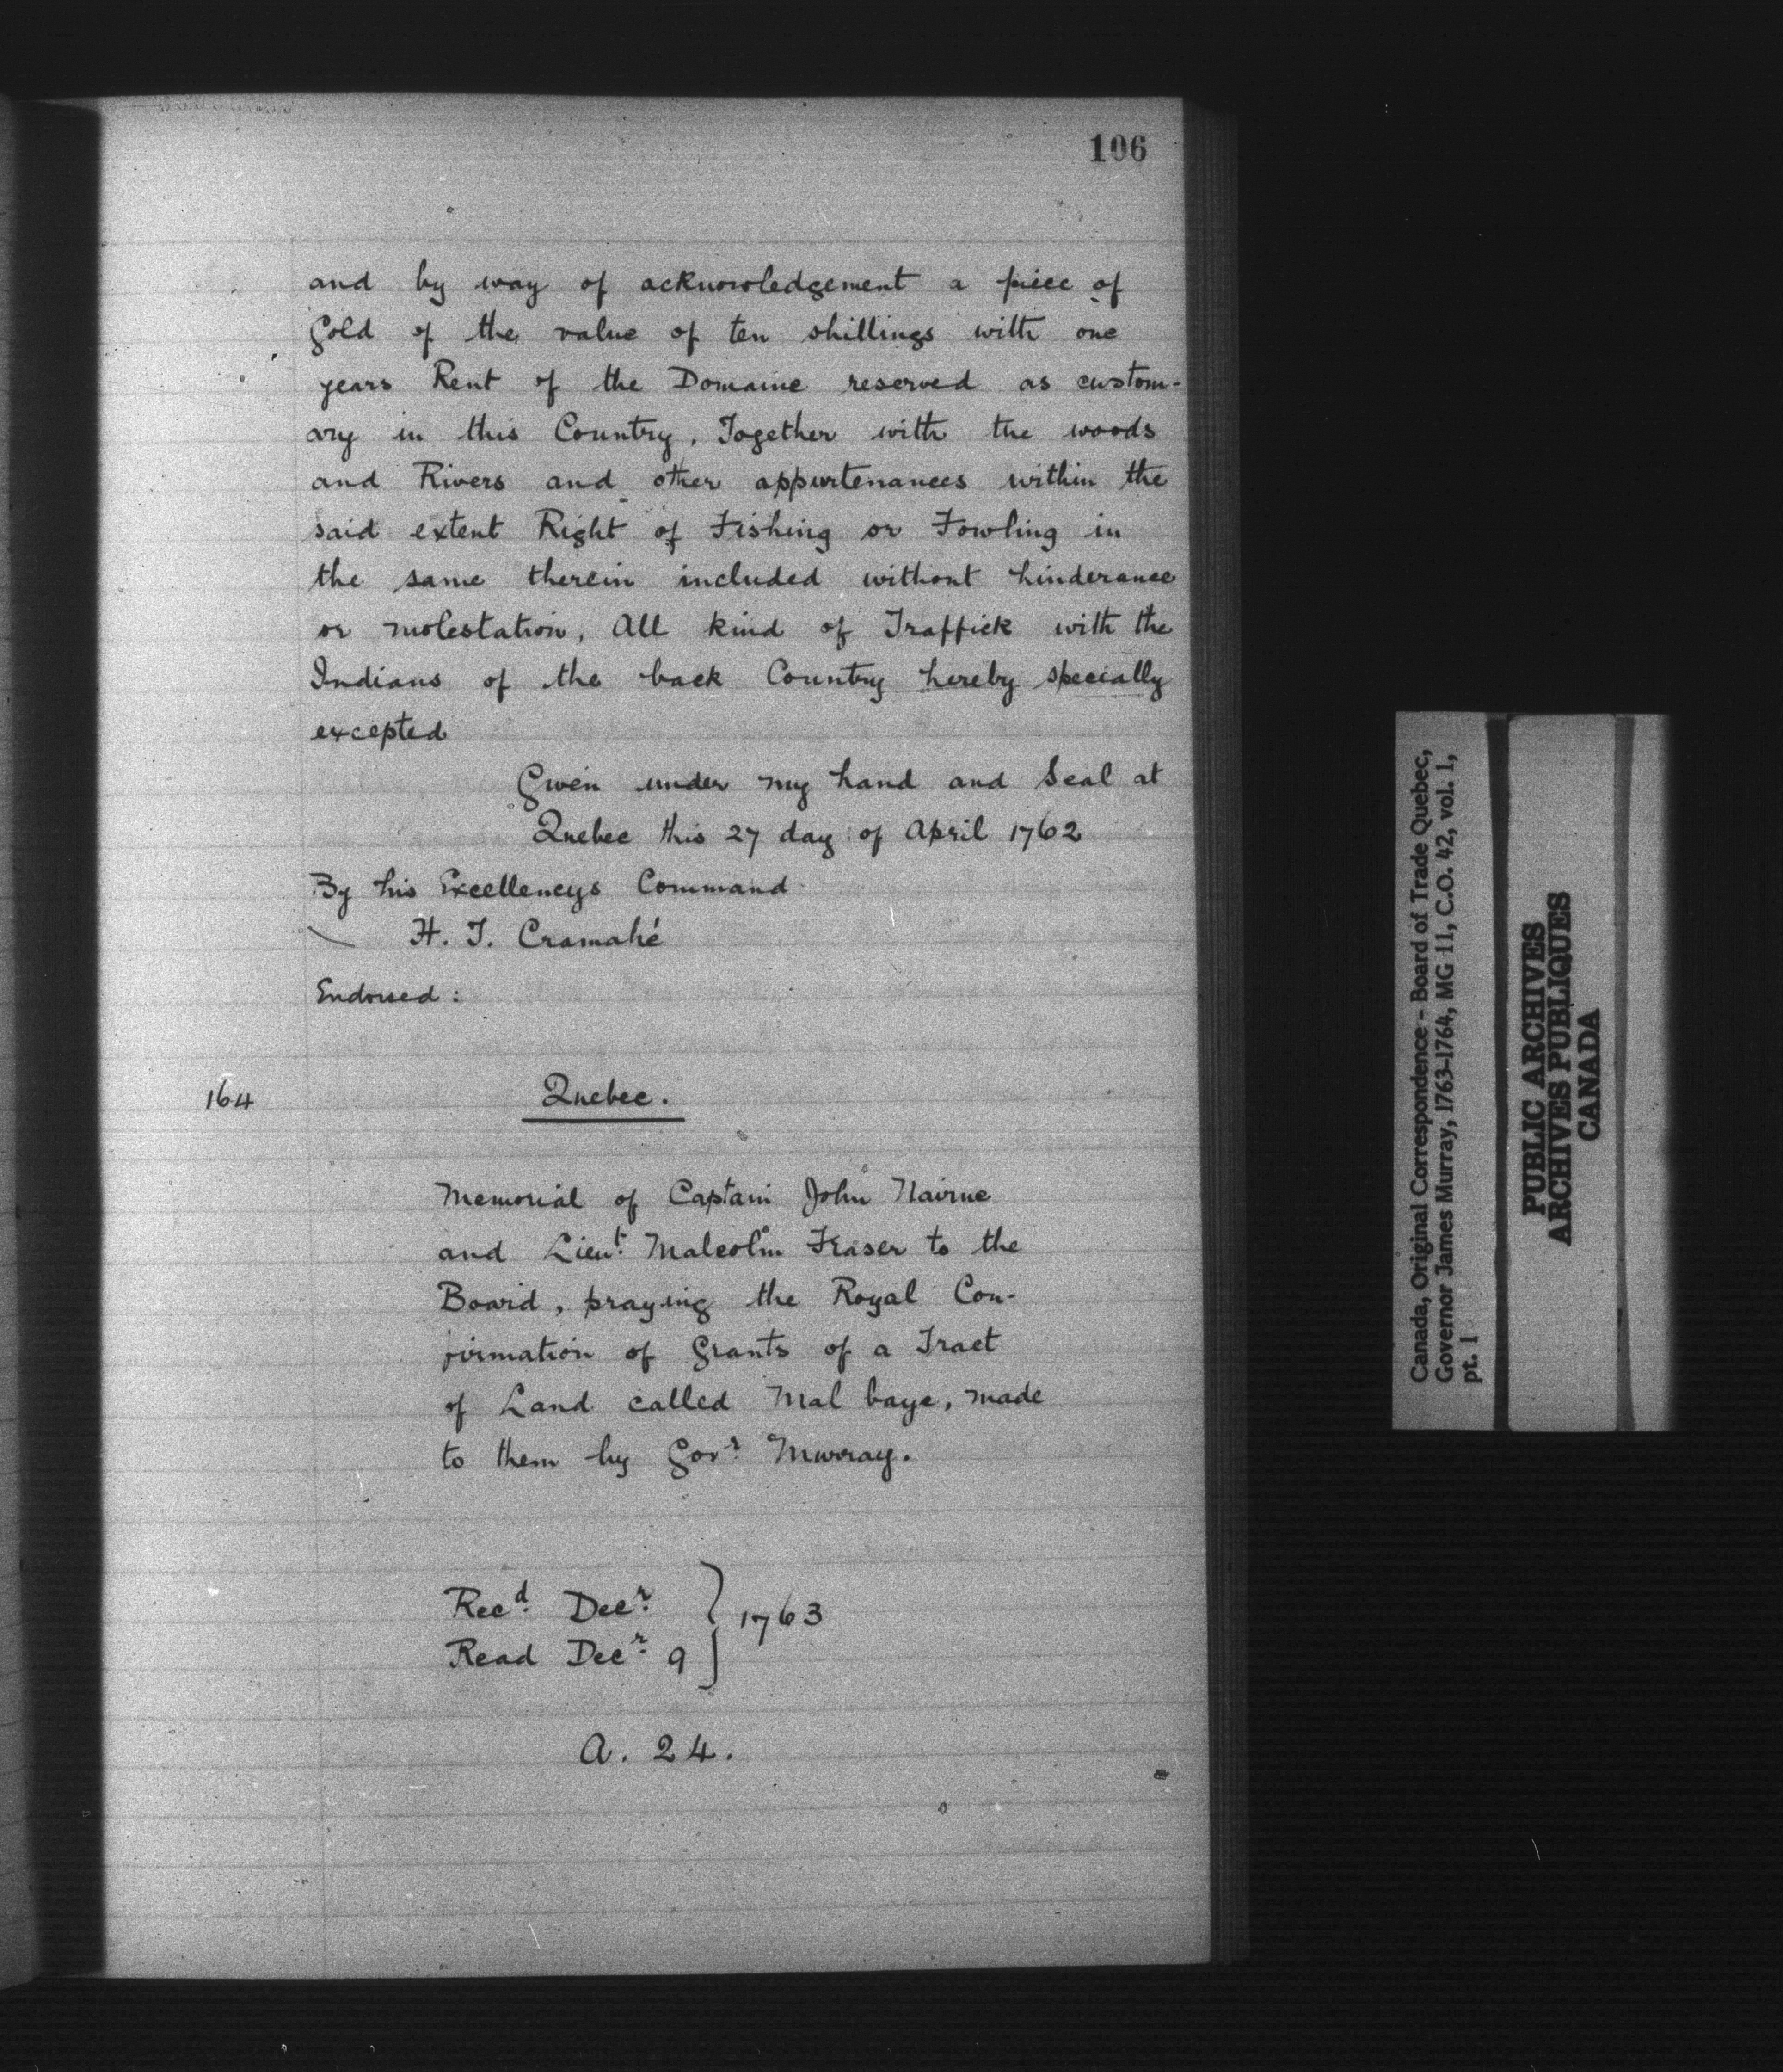 106
and by way of acknowledgement a piece of
Gold of the value of ten shillings with one
years Rent of the Domaine reserved as custom-
ary in this Country, Together with the woods
and Rivers and other appurtenances within the
said extent Right of Fishing or Fowling in
the same therein included without hinderance
or molestation, All kind of Traffick with the
Indians of the back Country hereby specially
excepted
Given under my hand and Seal at
Quebec this 27 day of April 1762
By his Excellencys Command
H. T. Cramahé
Endorsed :
164
Quebec.
Memorial of Captain John Nairne
and Lieut. Malcolm Fraser to the
Board, praying the Royal Con-
firmation of Grants of a Tract
of Land called Mal baye, made
to them by Govr. Murray.
Recd. Decr.
Read Decr. 9 } 1763
A. 24.
Canada, Original Correspondence - Board of Trade Quebec,
Governor James Murray, 1763-1764, MG 11, C.O. 42, vol. 1,
pt. 1
PUBLIC ARCHIVES
ARCHIVES PUBLIQUES
CANADA